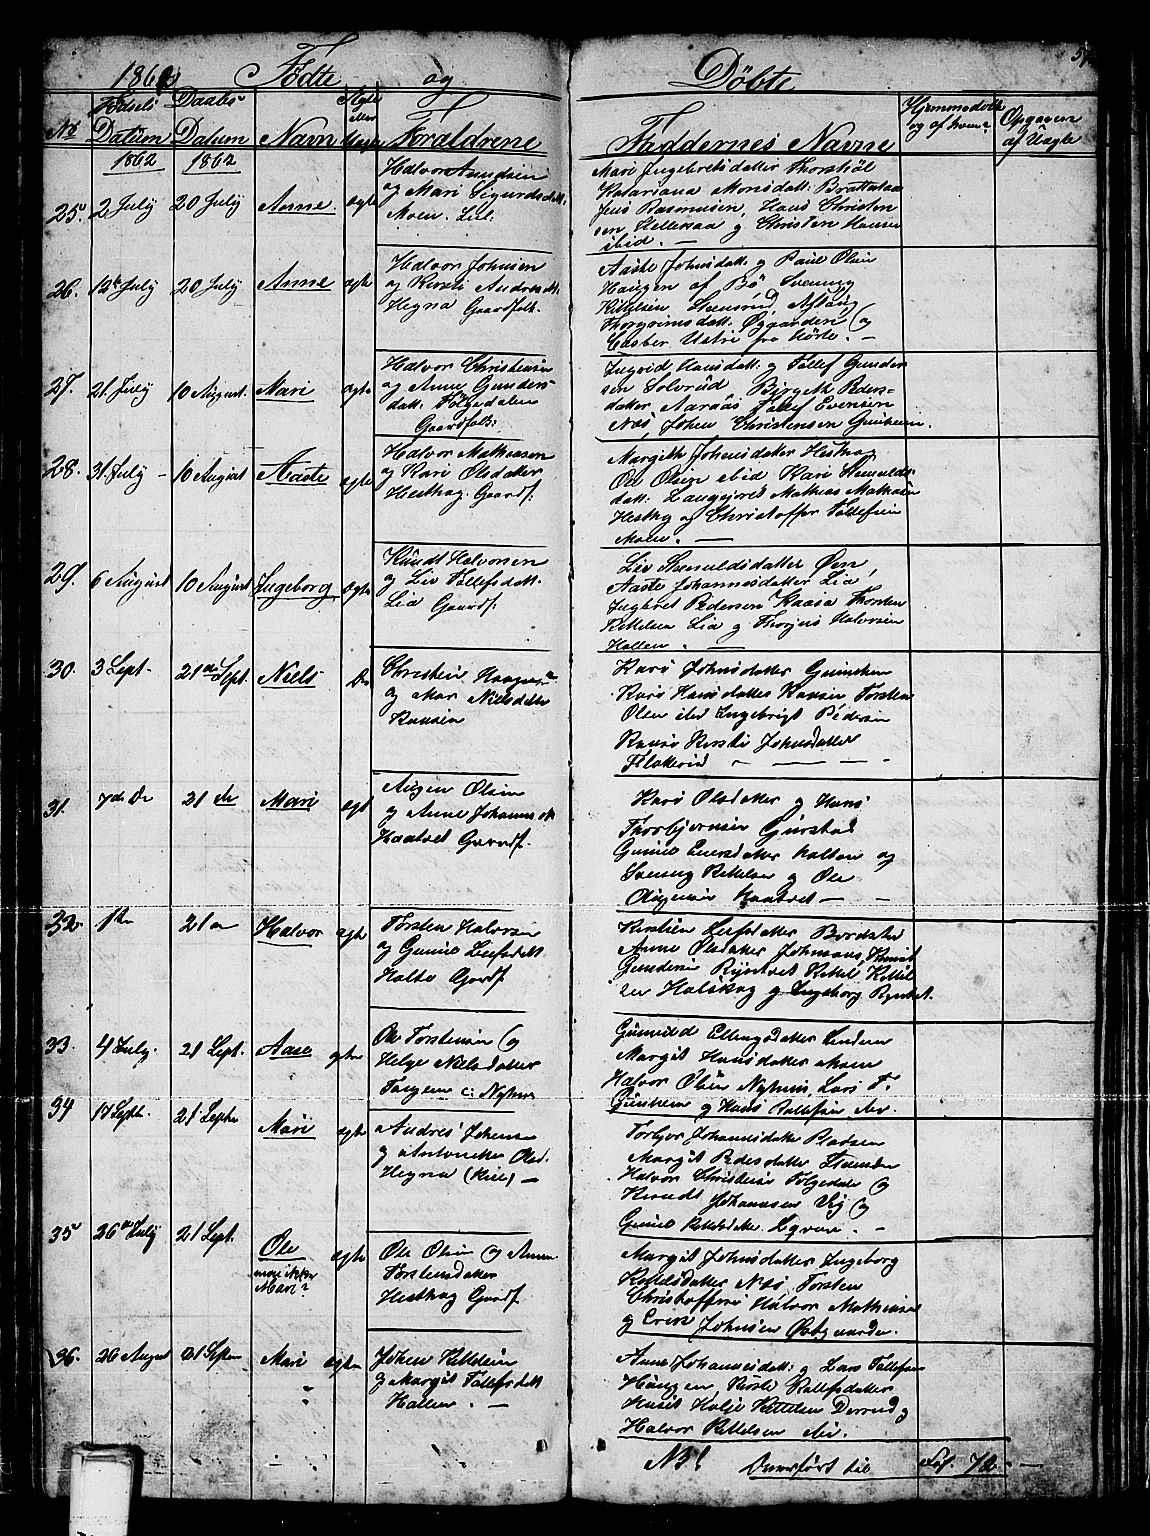 1862 Fødte og Døbte
No
Fødsels Datum
Daabs Datum
Navn
Ægte eller
Foraldrene
Faddernes Navne
Hjemmedøbt og af hvem?
Opgaven af Uægte
1862 1862
25 2 July 20 July Anne ægte
Halvor Amundsen
og Mari Sigurdsdatt:
Moen. Lil.
Mari Ingebretsdatter Thorstøl
Katariana Monsdatt: Brattataa
Jens Rasmusen, Hans Christen
sen Hellesaa g Christen Hansen
ibid. —
26. 12te July 20 July Anne ægte
Halvor Johnsen
og Kirsti Andresdatt:
Hegna Gaardfolk.
Aaste Johnsdatt: g Paul Olsen
Haugen af Bø Svenung
Kittelsen Steensrud, Aslaug
Thorgrimsdatt: Øgaarden og
Casber Ustri fra Hørte. —
27. 21 July 10 August. Mari ægte
Halvor Christensen
og Anne Gunders-
datt: Følgedalen
Gaardfolk:
Ingrid Hansdatt: g Tollef Gunder
sen Solvrud Birgith Peders-
datter Aaraas Tollef Evensen
Næs, Johen Christensen Gunheim.
28. 31 July - 10 August Aaste ægte
Halvor Mathiesen
og Kari Olsdatter
Hesthag Gaardf:
Margith Johensdatter Hesthag
Ole Olsen ibid Kari Stenulds
datt: Langejoret Mathias Mathisen
Hesthg og Christoffer Tollefsen
Moen. —
29. 6 August 10 August Ingeborg ægte
Knudt Halvorsen
og Liv Tollefsdatt:
Lia Gaardf:
Liv Stenuldsdatter Øen,
Aaste Johannesdatter Lia
Ingbret Pedersen Kaasa Thorsten
Kittelsen Lia g Thorjus Halvorsen
Hallen. —
30. 3 Sept. 21de Sept. Niels Do
Christen Haagensen
og Mari Nielsdatter
Kaasen
Kari Johnsdatter Gunheim
Kari Hansdatter Kaasen Torsten
Olsen ibd Ingebrigt Pedersen
Kaasa Kirsti Johnsdatter
Flakerud — — — —
31. 7de Do 21 do Mari ægt
Augen Olsen
og Anne Johannesdt
Haatvet Gaardf.
Kari Olsdatter og Hans
Thorbjørnsen Gurstad
Gunild Enersdatter Holten og
Svenug Kittelsen g Ole
Augensen Haatvet — —
32. 1 do 21 do Halvor ægte
Torsten Halvorsen
og Gunild Leifsdatt
Holte Gardf.
Kirstien Leifsdatter Bordstad
Anne Olsdatter Johnsaas, Knud
Gundersen Ryntvet Kittel Kittel
sen Hatskag g Ingeborg Ryntvet.
33. 4 July. 21 Sept. Aase ægte
Ole Torstensen og
Helge Nielsdatter
Tangene c: Nyhus
Gunuld Ellingsdatter Linden
Margit Hansdatter Moen
Halvor Olsen Nyhus, Lars T.
Gunheim g Hans Tollefsen Aei.
34 17 Sept. 21 Septbr Mari ægte
Andres Johensen
og Antonette Olsd.
Hegna (Kiil) —
Torbjor Johannesdatter Kaasen
Margit Pedersdatter Steensrud
Halvor Christensen Følgedalen og
Knudt Johannsen Vig og
Gunild Kittelsdatter Hegna. —
35 26de July 21 Sept. Ole
mon ikke
Mari?
ægte
Ole Olsen og Anne
Torstensdatter
Hesthag Gardf.
Margit Johnsdatter Ingeborg
Kittelsdatter Næs, Torsten
Christoffersen Halvor Mathiesen
og Erik Johnsen Østgaarden.
36. 26 August 21 Septbr Mari ægte
Johen Kittelsen
og Margit Tollefsdatt
Hallen. —
Anne Johannesdatt: g Lars Tollefsen
Haugen Kirsti Rollefsdatter
Huset Helje Kittelsen Dorrud g
Halvor Kittelsen Aei.
NB! Overført til Fol. 72 —